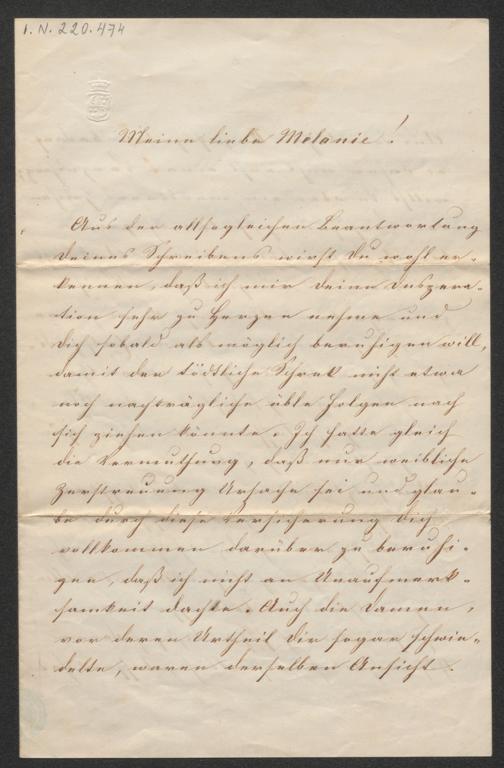 I. N. 220.474
Meine liebe Melanie!
Aus der allsogleichen Beantwortung
Deines Schreibens wirst Du wohl er-
kennen, daß ich mir Deine Despera-
tion sehr zu Herzen nehme und
Dich sobald als möglich beruhigen will,
damit der tödtliche Schrek nicht etwa
noch nachträgliche üble Folgen nach
sich ziehen könnte. Ich hatte gleich
die Vermuthung, daß nur weibliche
Zerstreuung Ursache sei und glau-
be durch diese Versicherung Dich
vollkommen darüber zu beruhi-
gen, daß ich nicht an Unaufmerk-
samkeit dachte. Auch die Damen,
vor deren Urtheil Dir sogar schwin-
delte, waren derselben Ansicht.